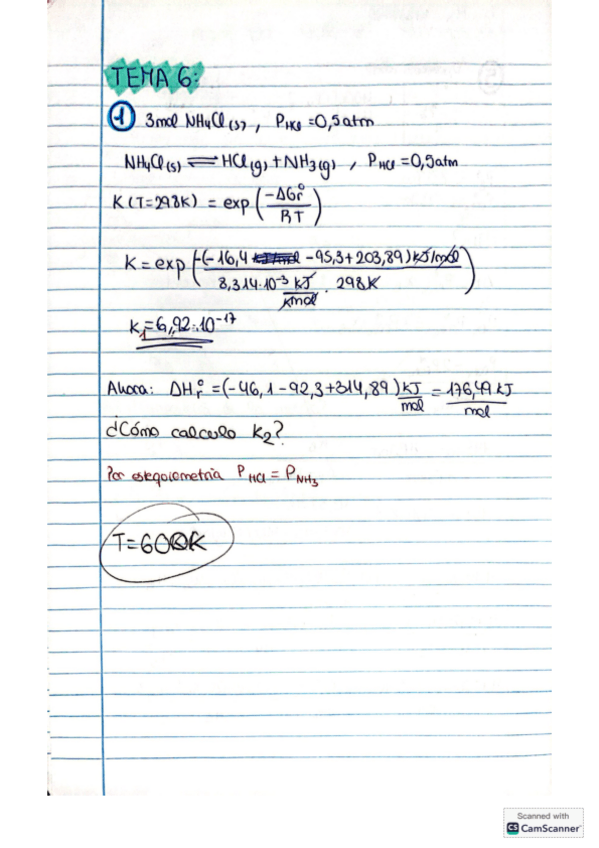 TEMA 6:
1 3mol NH4Cl(s), PHCl = 0,5atm
NH4Cl(s) ⇌ HCl(g) + NH3(g), PHCl = 0,5atm
K(T=298K) = exp(-ΔGr°/RT)
K = exp(-(-16,4 -95,3+203,89) kJ/mol / 8,314·10^-3 kJ/Kmol · 298K)
K1 = 6,92·10^-17
Ahora: ΔHr° = (-46,1-92,3+314,89) kJ/mol = 176,49 kJ/mol
¿Cómo calculo K2?
Por estequiometría PHCl = PNH3
T=600K
Scanned with
CS CamScanner